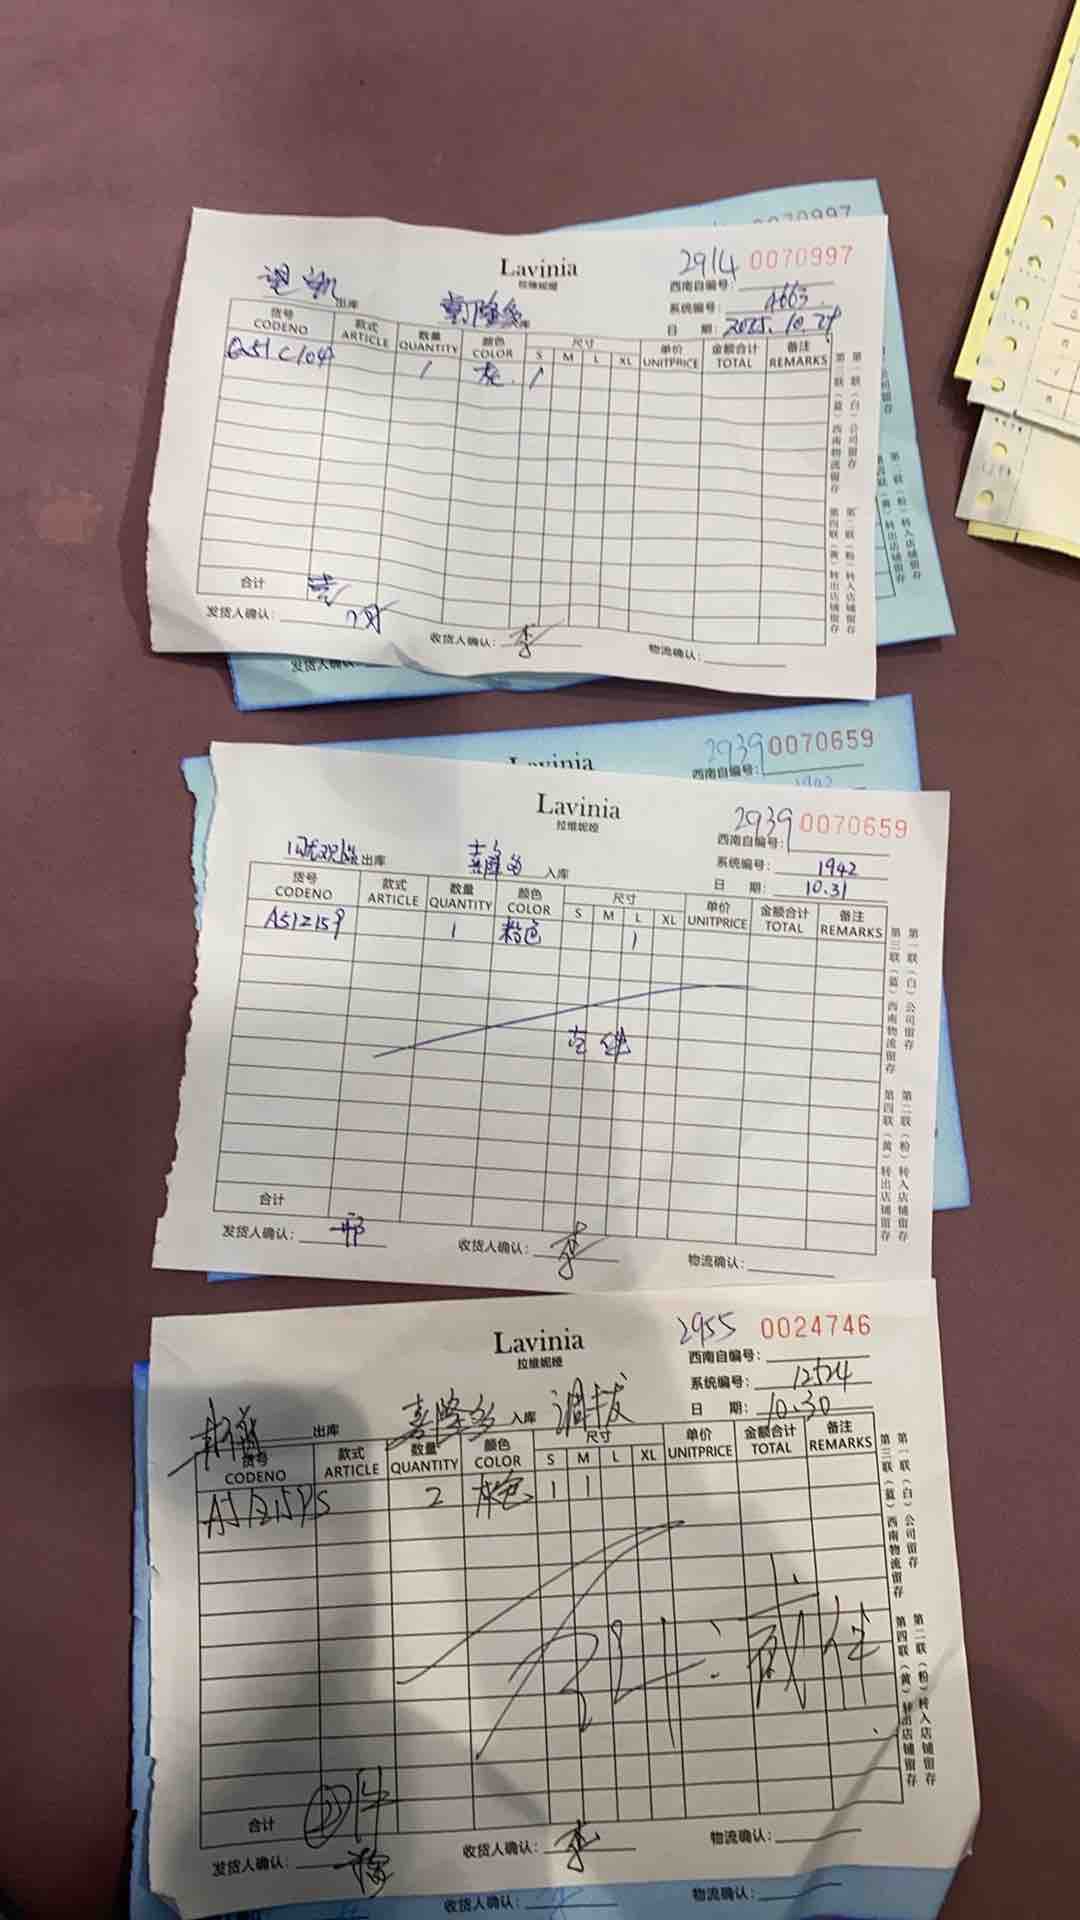 0070997
Lavinia
拉维妮娅
2914 0070997
西南自编号:
出库
库
系统编号: 4663
日 期: 2025.10.29
货号 款式 数量 颜色 尺寸 单价 金额合计 备注
CODENO ARTICLE QUANTITY COLOR S M L XL UNITPRICE TOTAL REMARKS
Q51C104 1 灰 1
合计
发货人确认:
收货人确认: 李
物流确认:
第一联(白)公司留存
第二联(粉)转入店铺留存
第三联(蓝)西南物流留存
第四联(黄)转出店铺留存
发货人确认:
Lavinia
2939 0070659
西南自编号:
1942
Lavinia
拉维妮娅
2939 0070659
西南自编号:
出库 喜隆多 入库
系统编号: 1942
日 期: 10.31
货号 款式 数量 颜色 尺寸 单价 金额合计 备注
CODENO ARTICLE QUANTITY COLOR S M L XL UNITPRICE TOTAL REMARKS
A51Z159 1 粉色 1
合计
发货人确认:
收货人确认: 李
物流确认:
第一联(白)公司留存
第二联(粉)转入店铺留存
第三联(蓝)西南物流留存
第四联(黄)转出店铺留存
Lavinia
拉维妮娅
2955 0024746
西南自编号:
出库 喜隆多 入库 调拔
系统编号: 12524
日 期: 10.30
货号 款式 数量 颜色 尺寸 单价 金额合计 备注
CODENO ARTICLE QUANTITY COLOR S M L XL UNITPRICE TOTAL REMARKS
2 灰色 1 1
合计 ②件
发货人确认: 徐
收货人确认: 李
物流确认:
第一联(白)公司留存
第二联(粉)转入店铺留存
第三联(蓝)西南物流留存
第四联(黄)转出店铺留存
收货人确认:
物流确认: